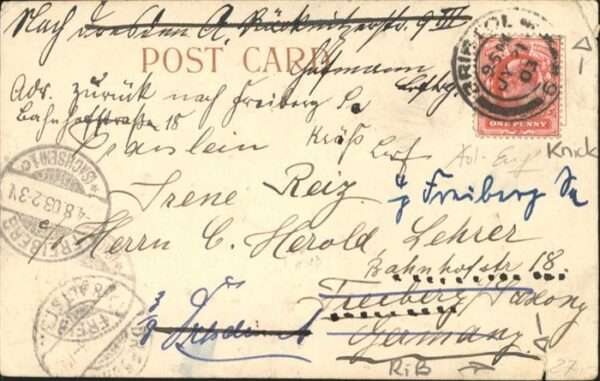 Nach Dresden A. Räcknitzerstr. 9 III
POST CARD
BRISTOL
9 5 PM
JY 31
03
ONE PENNY
Adr. zurück nach Freiberg Sa
Bahnhofstraße 18
Knick
Fräulein
Irene Reiz
Freiberg Sa
FREIBERG
(SACHSEN) 1
4.8.03.2-3N
p/ Herrn C. Herold, Lehrer
Bahnhofstr 18.
Freiberg / Saxony
Dresden
Germany
Riß
27